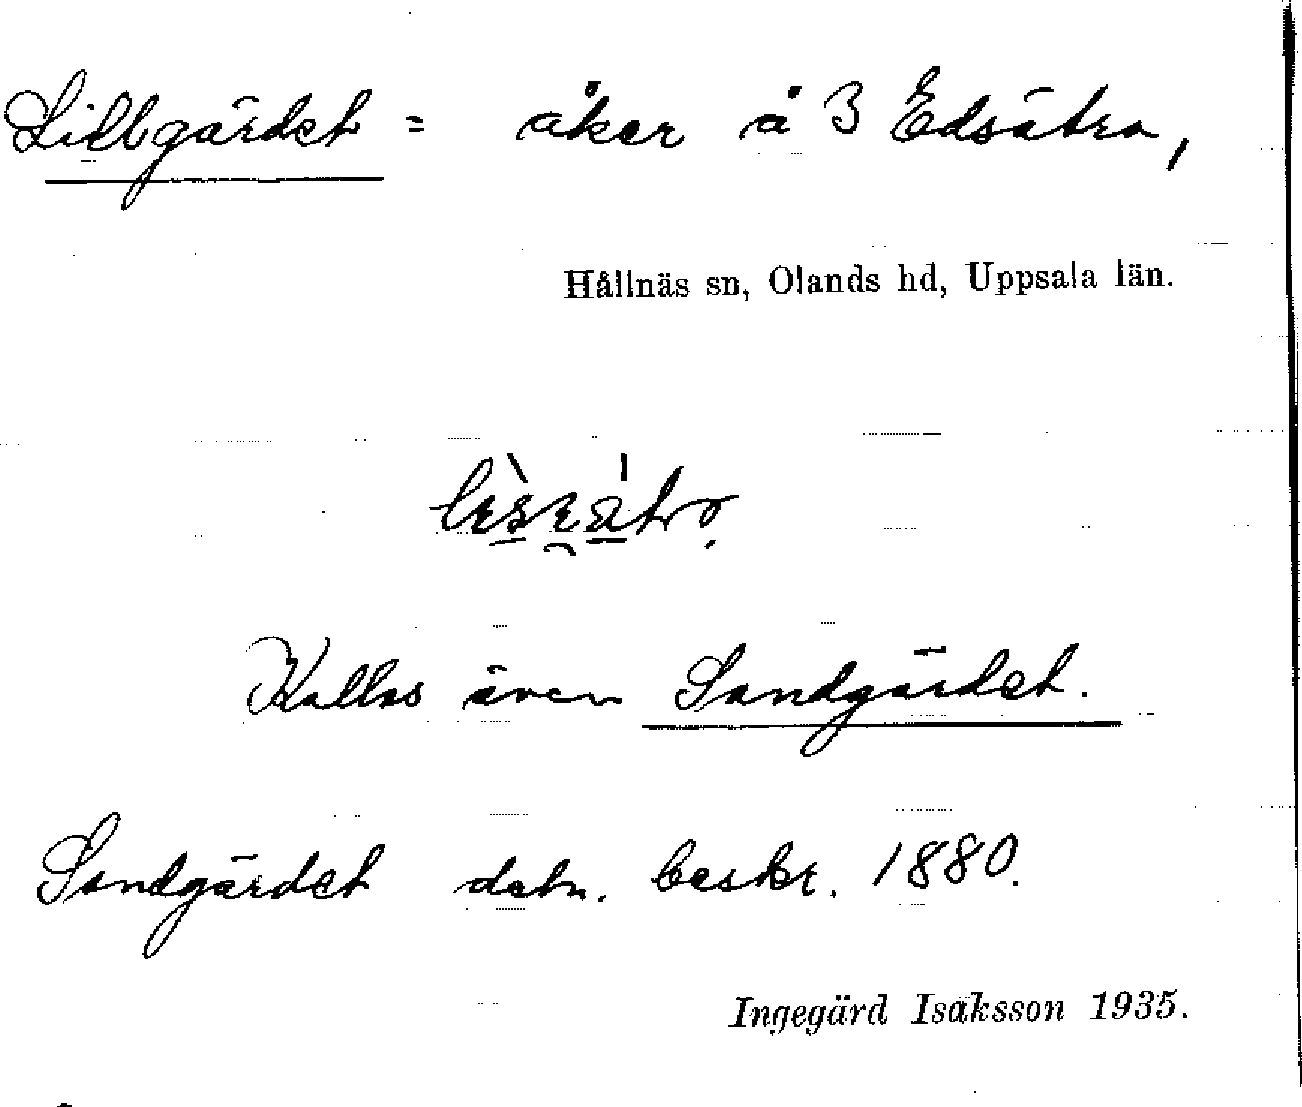 Lillgärdet = åker å 3 Edsätra,
Hållnäs sn, Olands hd, Uppsala län.
Kallas även Sandgärdet.
Sandgärdet dotn. beskr. 1880.
Ingegärd Isaksson 1935.